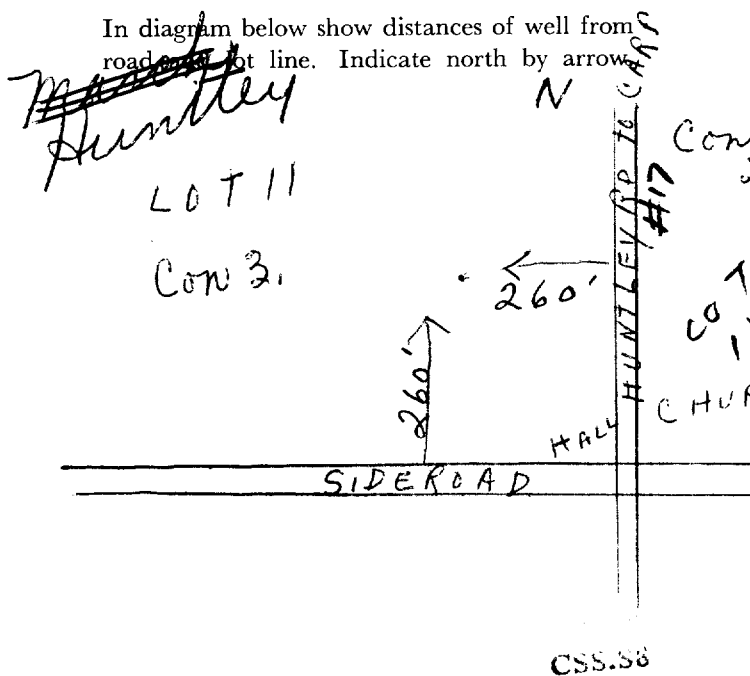 In diagram below show distances of well from
road lot line. Indicate north by arrow
Huntley
N
LOT 11
Con 3.
260'
260'
HUNTLEY RD to CARP
#17
Con
HALL
CHUR
SIDEROAD
CSS.S8